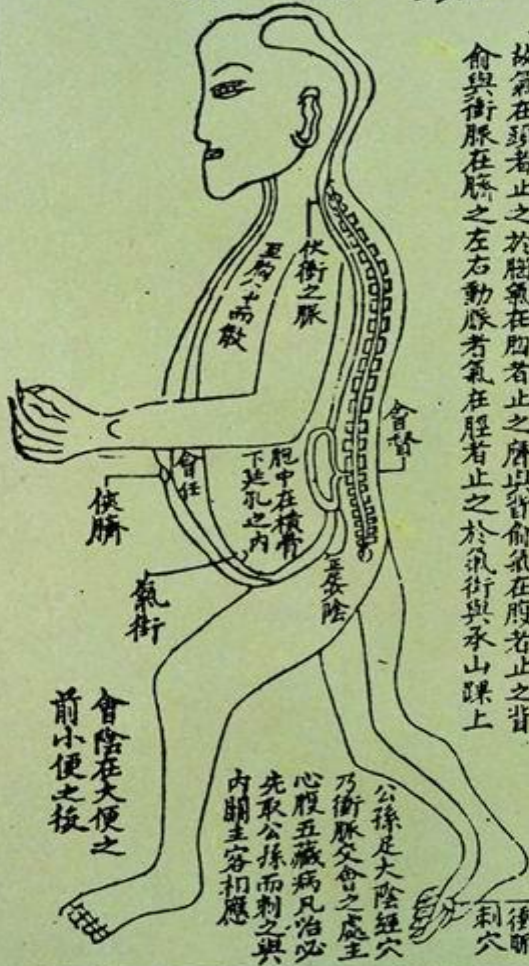 故氣在頭者止之於腦氣在胸者止之膺與背俞氣在腹者止之背
俞與衝脈在臍之左右動脈者氣在脛者止之於氣街與承山踝上
伏衝之脈
至胸而散
會督
會任
胞中在橫骨
下廷孔之內
俠臍
氣街
陰
會陰在大便之
前小便之後
公孫足大陰經穴
乃衝脈交會之處主
心腹五藏病凡治必
先取公孫而刺之與
內關主客相應
刺穴